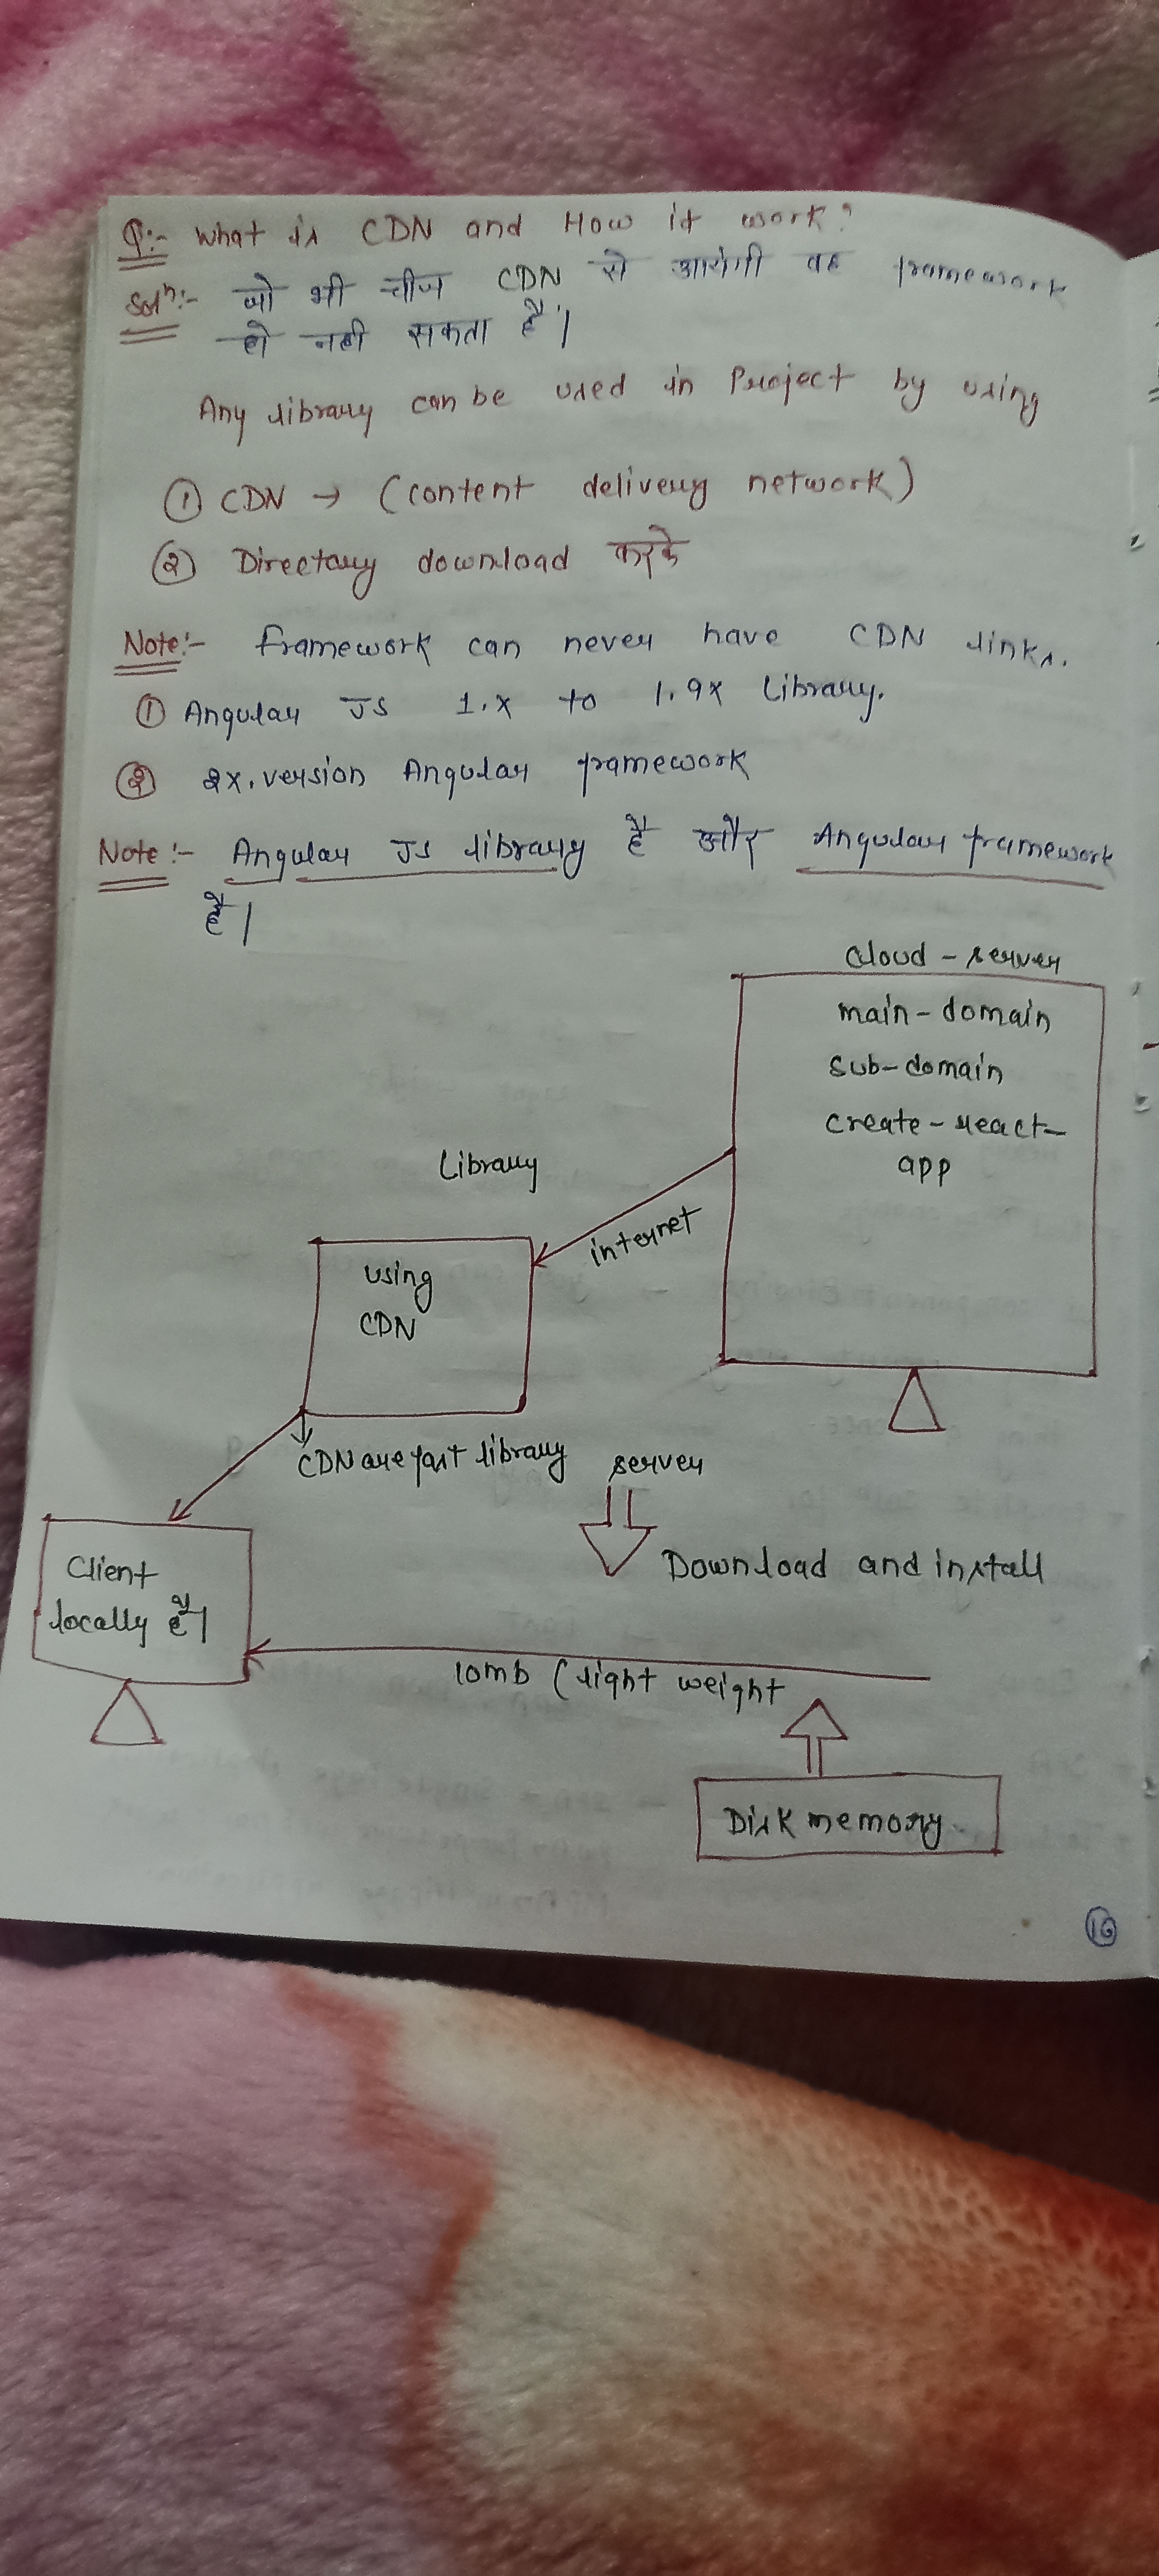 Q:- What is CDN and How it work?
Solⁿ:- जो भी चीज CDN से आयेगी वह framework
हो नही सकता है।
Any library can be used in Project by using
① CDN → (content delivery network)
② Directory download करके
Note:- framework can never have CDN links.
① Angular JS 1.x to 1.9x Library.
② 2x.version Angular framework
Note:- Angular Js library है और Angular framework
है।
cloud-server
main-domain
sub-domain
create-react-
app
Library
internet
using
CDN
CDN are fast library
server
Download and install
Client
locally है।
10mb (light weight
Disk memory
16